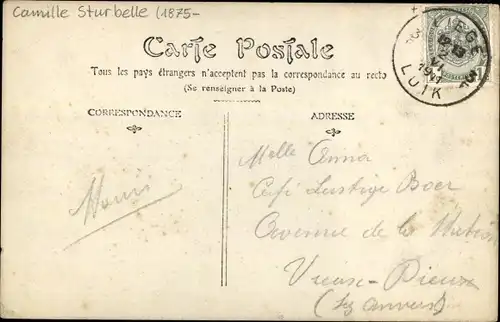 Camille Sturbelle (1875-
Carte Postale
Tous les pays étrangers n'acceptent pas la correspondance au recto
(Se renseigner à la Poste)
CORRESPONDANCE
ADRESSE
LIEGE
1911
LUIK
1
Melle Anna
Café Lustige Boer
Avenue de la
Vieux-Dieux
(lez Anvers)